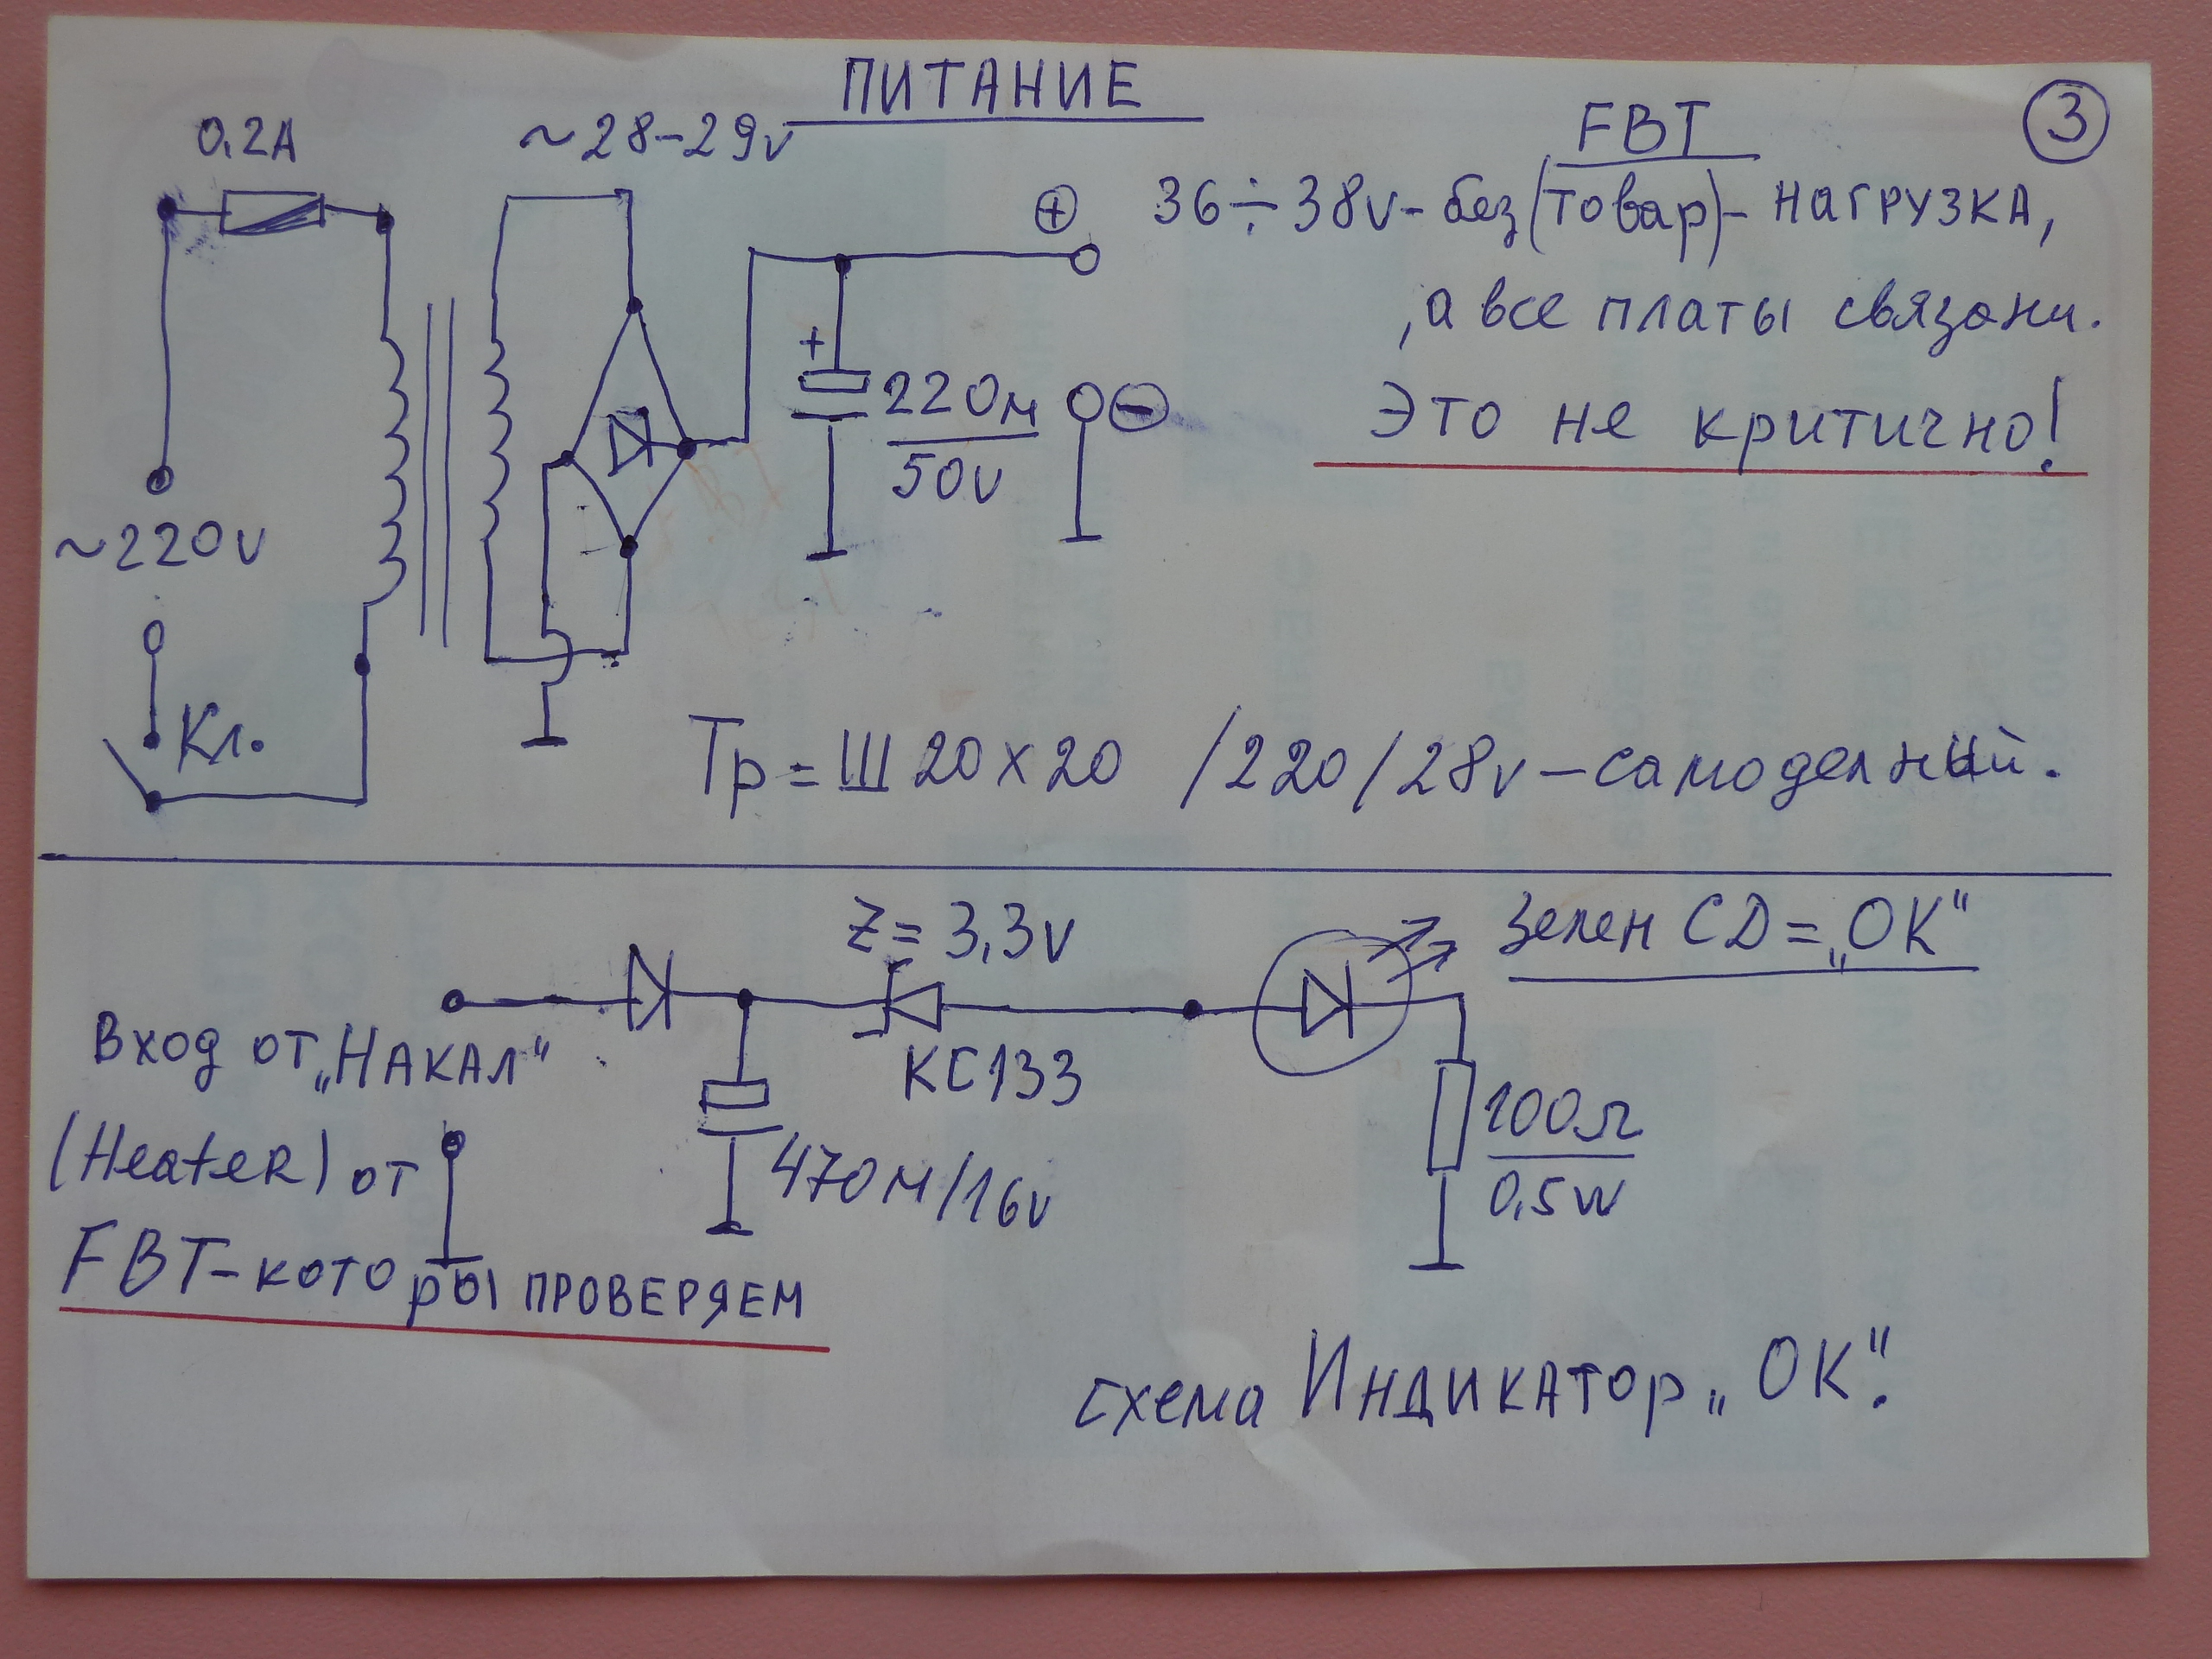 ПИТАНИЕ
3
0.2А
~28-29v
FBT
+
36÷38v-без(товар)-нагрузка,
,а все платы связани.
Это не критично!
+
220м
50v
-
~220v
Кл.
Тр=Ш20x20 /220/28v-самоделный.
Z=3,3v
Зелен СД=„ОК“
Вход от „Накал“
КС133
(Heater) от
470м/16v
100Ω
0,5w
FBT-которы проверяем
схема Индикатор „ОК“.